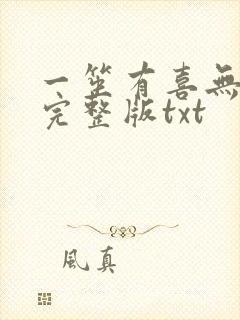 一笙有喜無
完整版txt
風真